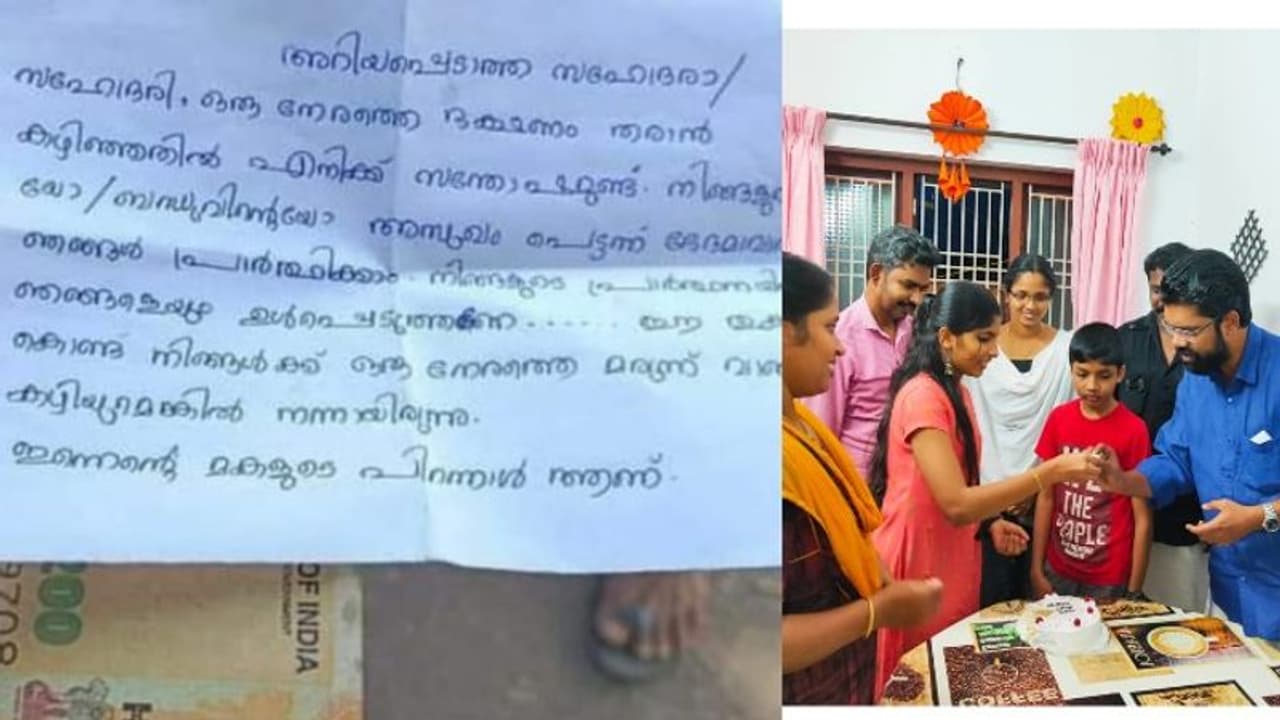 അറിയപ്പെടാത്ത സഹോദരാ/
സഹോദരി, ഒരു നേരത്തെ ഭക്ഷണം തരാൻ
കഴിഞ്ഞതിൽ എനിക്ക് സന്തോഷമുണ്ട്. നിങ്ങളുടെ
യോ/ബന്ധുവിന്റെയോ അസുഖം പെട്ടന്ന്
ഞങ്ങൾ പ്രാർത്ഥിക്കാം. നിങ്ങളുടെ
ഞങ്ങളെയും ഉൾപ്പെടുത്തണേ...... ഈ
കൊണ്ട് നിങ്ങൾക്ക് ഒരു നേരത്തെ മരുന്ന്
കഴിയുമെങ്കിൽ നന്നായിരുന്നു.
ഇന്നെന്റെ മകളുടെ പിറന്നാൾ ആണ്.
200
OF INDIA
THE
COFFEE